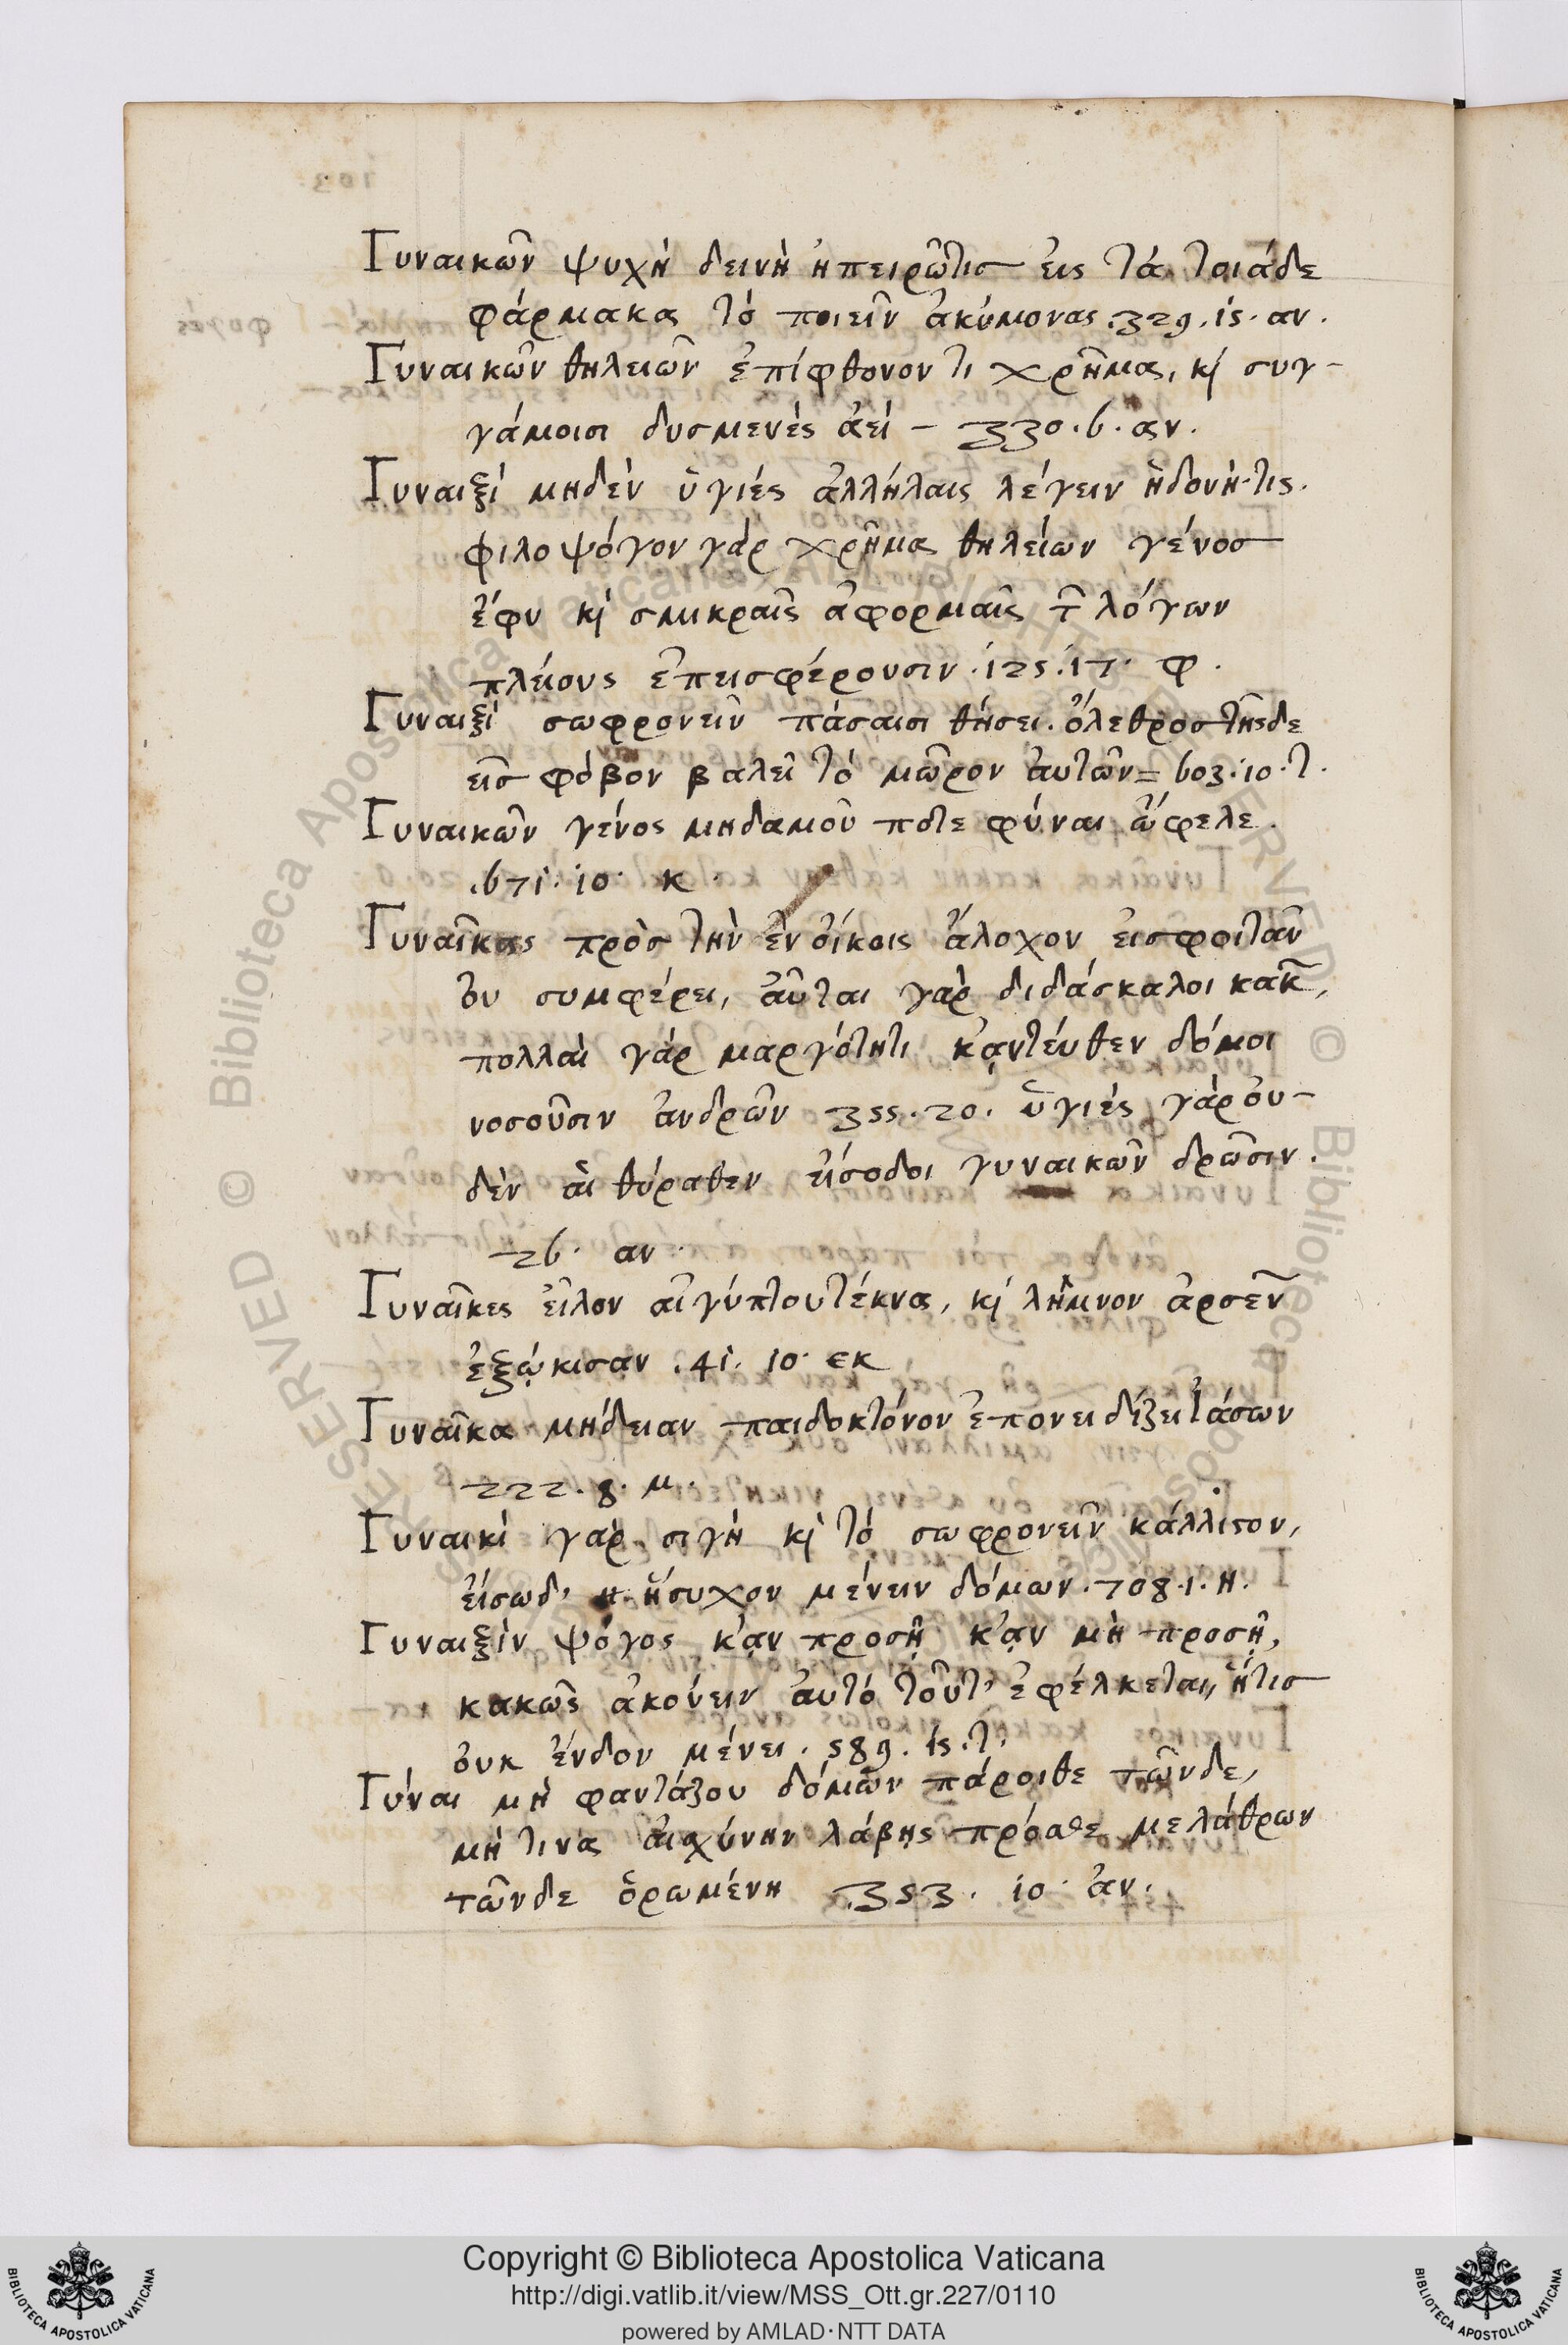 Γυναικῶν ψυχὴ δεινὴ ἠπειρῶτις εἰς τὰ τοιάδε
φάρμακα τὸ ποιεῖν ἀκύμονας .329. 15. αν.
Γυναικῶν θηλειῶν ἐπίφθονον τι χρῆμα, κὶ συγ-
γάμοισι δυσμενὲς ἀεί – 330. 6. αν.
Γυναιξί μηδὲν ὑγιές ἀλλήλαις λέγειν ἡδονή τις.
φιλοψόγον γὰρ χρῆμα θηλείων γένος
ἔφυ κὶ σμικραῖς ἀφορμαῖς τ͂ λόγων
πλείους ἐπεισφέρουσιν .125. 17. φ.
Γυναιξί σωφρονεῖν πάσαισι θήσει. ὄλεθρος τῆςδε
εἰς φόβον βαλεῖ τὸ μῶρον ἀυτῶν = 603. 10. τ.
Γυναικῶν γένος μηδαμοῦ ποτε φύναι ὤφελε.
.671. 10. κ.
Γυναῖκας πρὸς τὴν ἐν οἴκοις ἄλοχον εἰσφοιτᾶν
ὀυ συμφέρει, ἁῦται γὰρ διδάσκαλοι κακ͂,
πολλαὶ γὰρ μαργότητι κᾀντέυθεν δόμοι
νοσοῦσιν ἀνδρῶν 355. 20. ὑγιές γὰρ ὀυ-
δὲν ἁι θύραθεν εἴσοδοι γυναικῶν δρῶσιν.
26. αν.
Γυναῖκες εἷλον αἰγύπτου τέκνα, κὶ λῆμνον ἀρσεν͂
ἐξῴκισαν .41. 10. εκ
Γυναῖκα μήδειαν παιδοκτόνον ἐπονειδίζει ἰάσων
222. 8. μ.
Γυναικὶ γὰρ σιγὴ κὶ τὸ σωφρονεῖν κάλλιστον,
εἴσωδ' ἥσυχον μένειν δόμων .708. 1. Η.
Γυναιξὶν ψόγος κᾂν προσῇ κᾂν μὴ προσῇ,
κακῶς ἀκούειν ἀυτὸ τοῦτ' ἐφέλκεται, ἥτις
ὀυκ ἔνδον μένει. 589. 15. τ.
Γύναι μὴ φαντάζου δόμων πάροιθε τῶνδε,
μὴ τινα αἰσχύνην λάβῃς πρόσθε μελάθρων
τῶνδε ὁρωμένη .353. 10. ἀν.
Copyright © Biblioteca Apostolica Vaticana
http://digi.vatlib.it/view/MSS_Ott.gr.227/0110
powered by AMLAD·NTT DATA